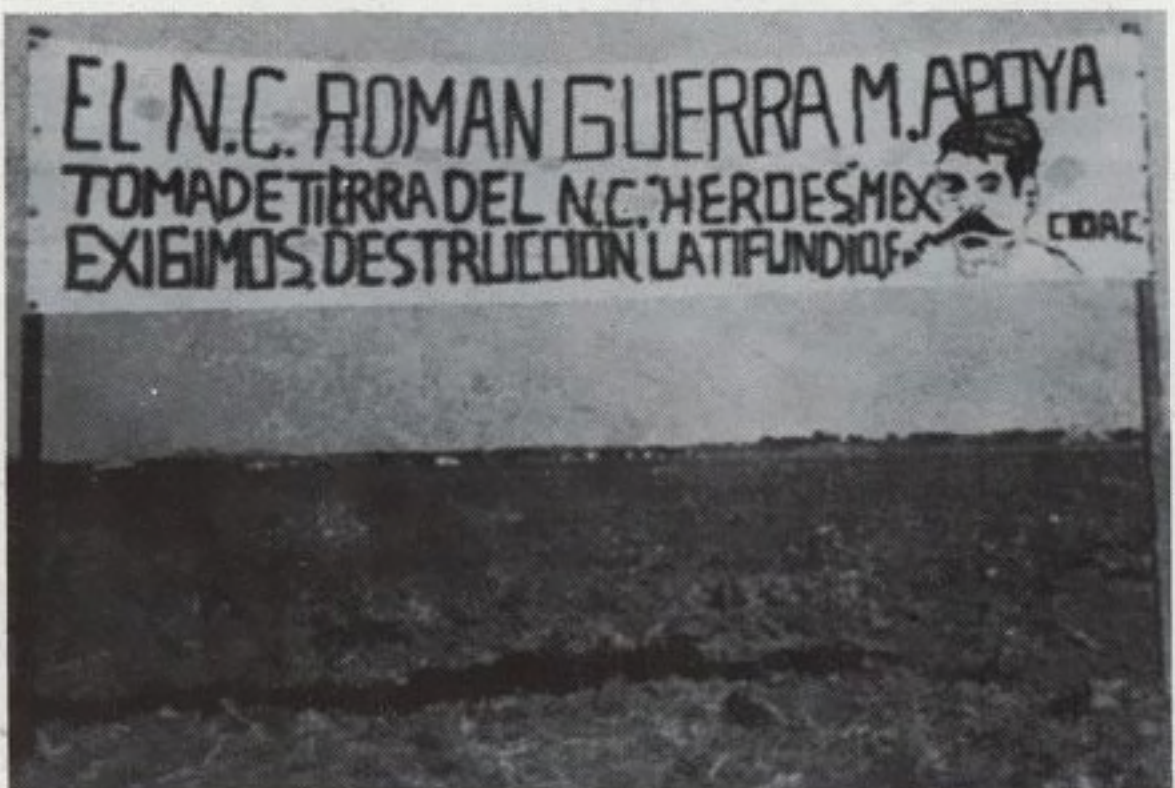 EL N.C. ROMAN GUERRA M. APOYA
TOMA DE TIERRA DEL N.C. "HEROES MEX
EXIGIMOS DESTRUCCION LATIFUNDIO
CIOAC